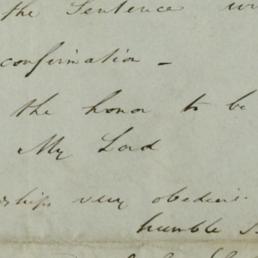 the Sentence
confirmation -
the honor to be
My Lord
very obedient
humble